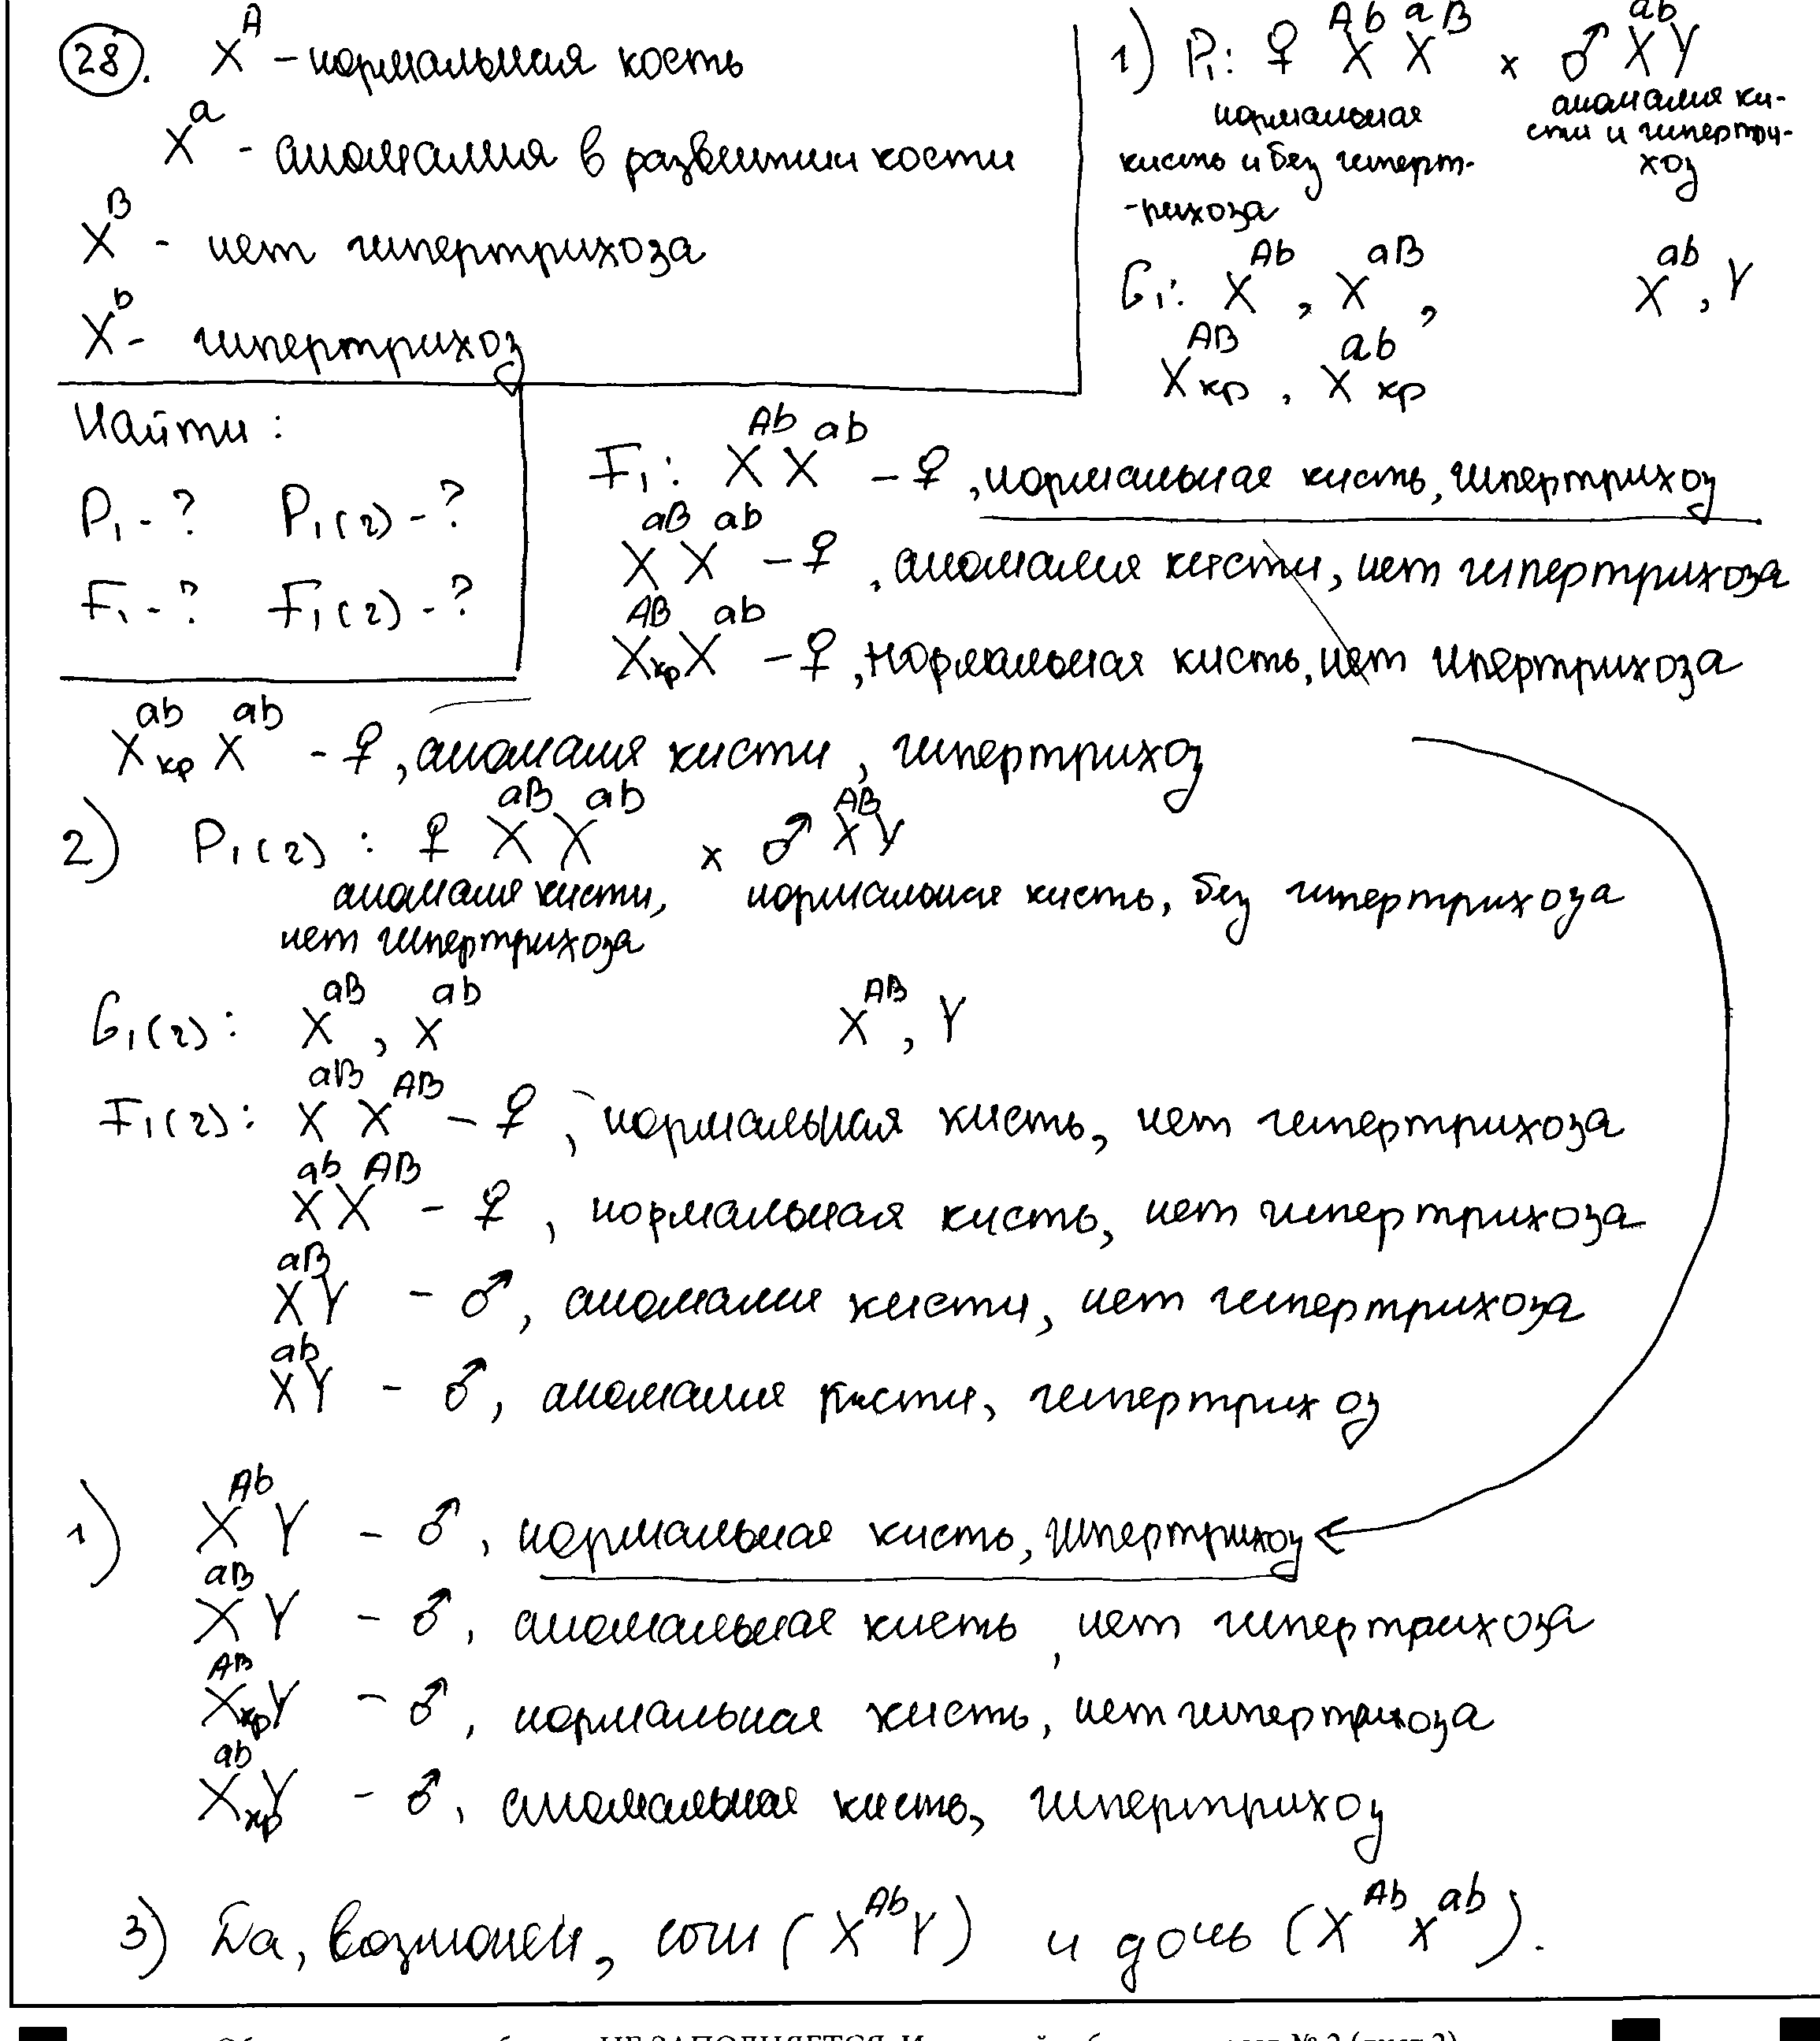 28. X^A - нормальная кость
X^a - аномалия в развитии кости
X^B - нет гипертрихоза
X^b - гипертрихоз
1) P₁: ♀ X^Ab X^aB × ♂ X^ab Y
нормальная кисть и без гиперт-
-рихоза
аномалия ки-
сти и гипертри-
хоз
G₁: X^Ab, X^aB, X^ab, Y
X^AB кр, X^ab кр
Найти:
P₁ - ? P₁(2) - ?
F₁ - ? F₁(2) - ?
F₁: X^Ab X^ab - ♀, нормальная кисть, гипертрихоз
X^aB X^ab - ♀, аномалия кисти, нет гипертрихоза
X^AB кр X^ab - ♀, нормальная кисть, нет гипертрихоза
X^ab кр X^ab - ♀, аномалия кисти, гипертрихоз
2) P₁(2): ♀ X^aB X^ab × ♂ X^AB Y
аномалия кисти, нормальная кисть, без гипертрихоза
нет гипертрихоза
G₁(2): X^aB, X^ab X^AB, Y
F₁(2): X^aB X^AB - ♀, нормальная кисть, нет гипертрихоза
X^ab X^AB - ♀, нормальная кисть, нет гипертрихоза
X^aB Y - ♂, аномалия кисти, нет гипертрихоза
X^ab Y - ♂, аномалия кисти, гипертрихоз
1) X^Ab Y - ♂, нормальная кисть, гипертрихоз
X^aB Y - ♂, аномальная кисть, нет гипертрихоза
X^AB кр Y - ♂, нормальная кисть, нет гипертрихоза
X^ab кр Y - ♂, аномальная кисть, гипертрихоз
3) Да, возможен, сын (X^Ab Y) и дочь (X^Ab X^ab).